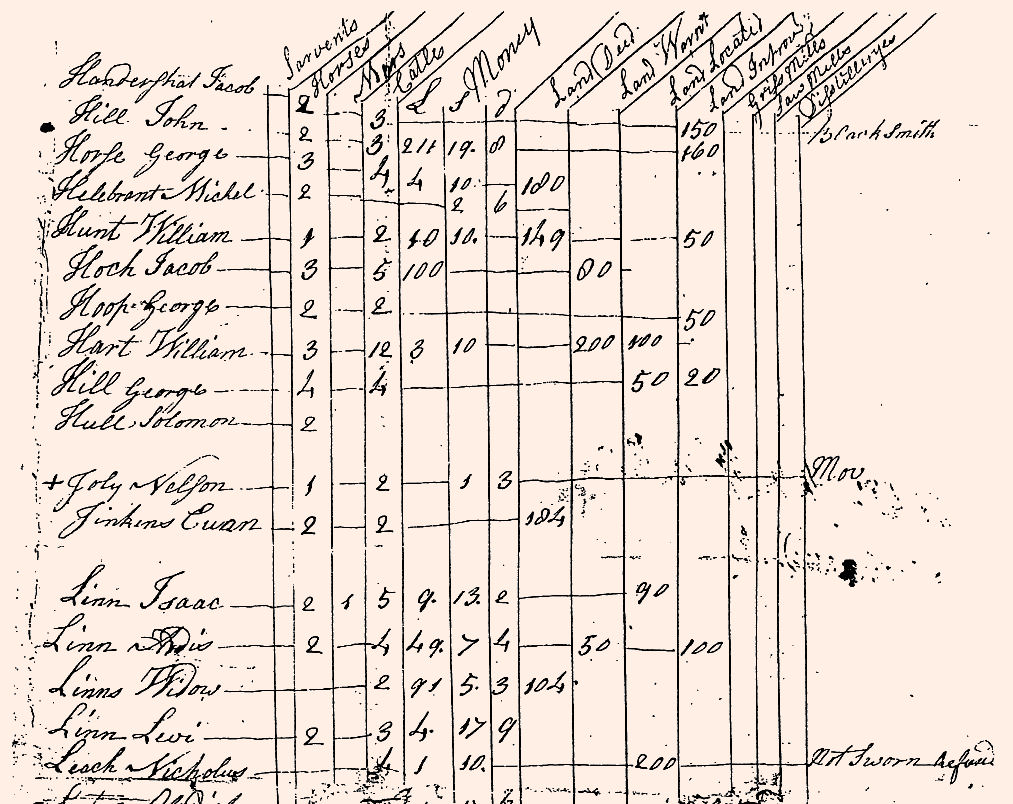 Sarvents Horses Cattle Money Land Deed Land Warnt Land Locati Land Improv Gris Mills Saw Mills Distilleryes
£ s d
Handershat Jacob 2 3 150
Hill John 2 3 211 19. 8 160 Black Smith
Horse George 3 4 4 10 180
Helebrant Michel 2 2 6
Hunt William 1 2 10 10. 149 50
Hoch Jacob 3 5 100 80
Hoop George 2 2 50
Hart William 3 12 3 10 200 100
Hill George 4 4 50 20
Hull Solomon 2
+ Joly Nelson 1 2 1 3 Mov
Jinkens Evan 2 2 184
Linn Isaac 2 1 5 9. 13. 2 90
Linn 2 4 49. 7 4 50 100
Linns Widow 2 91 5. 3 104
Linn Levi 2 3 4. 17 9
Leach Nicholus 4 1 10. 200 Not Sworn Refused